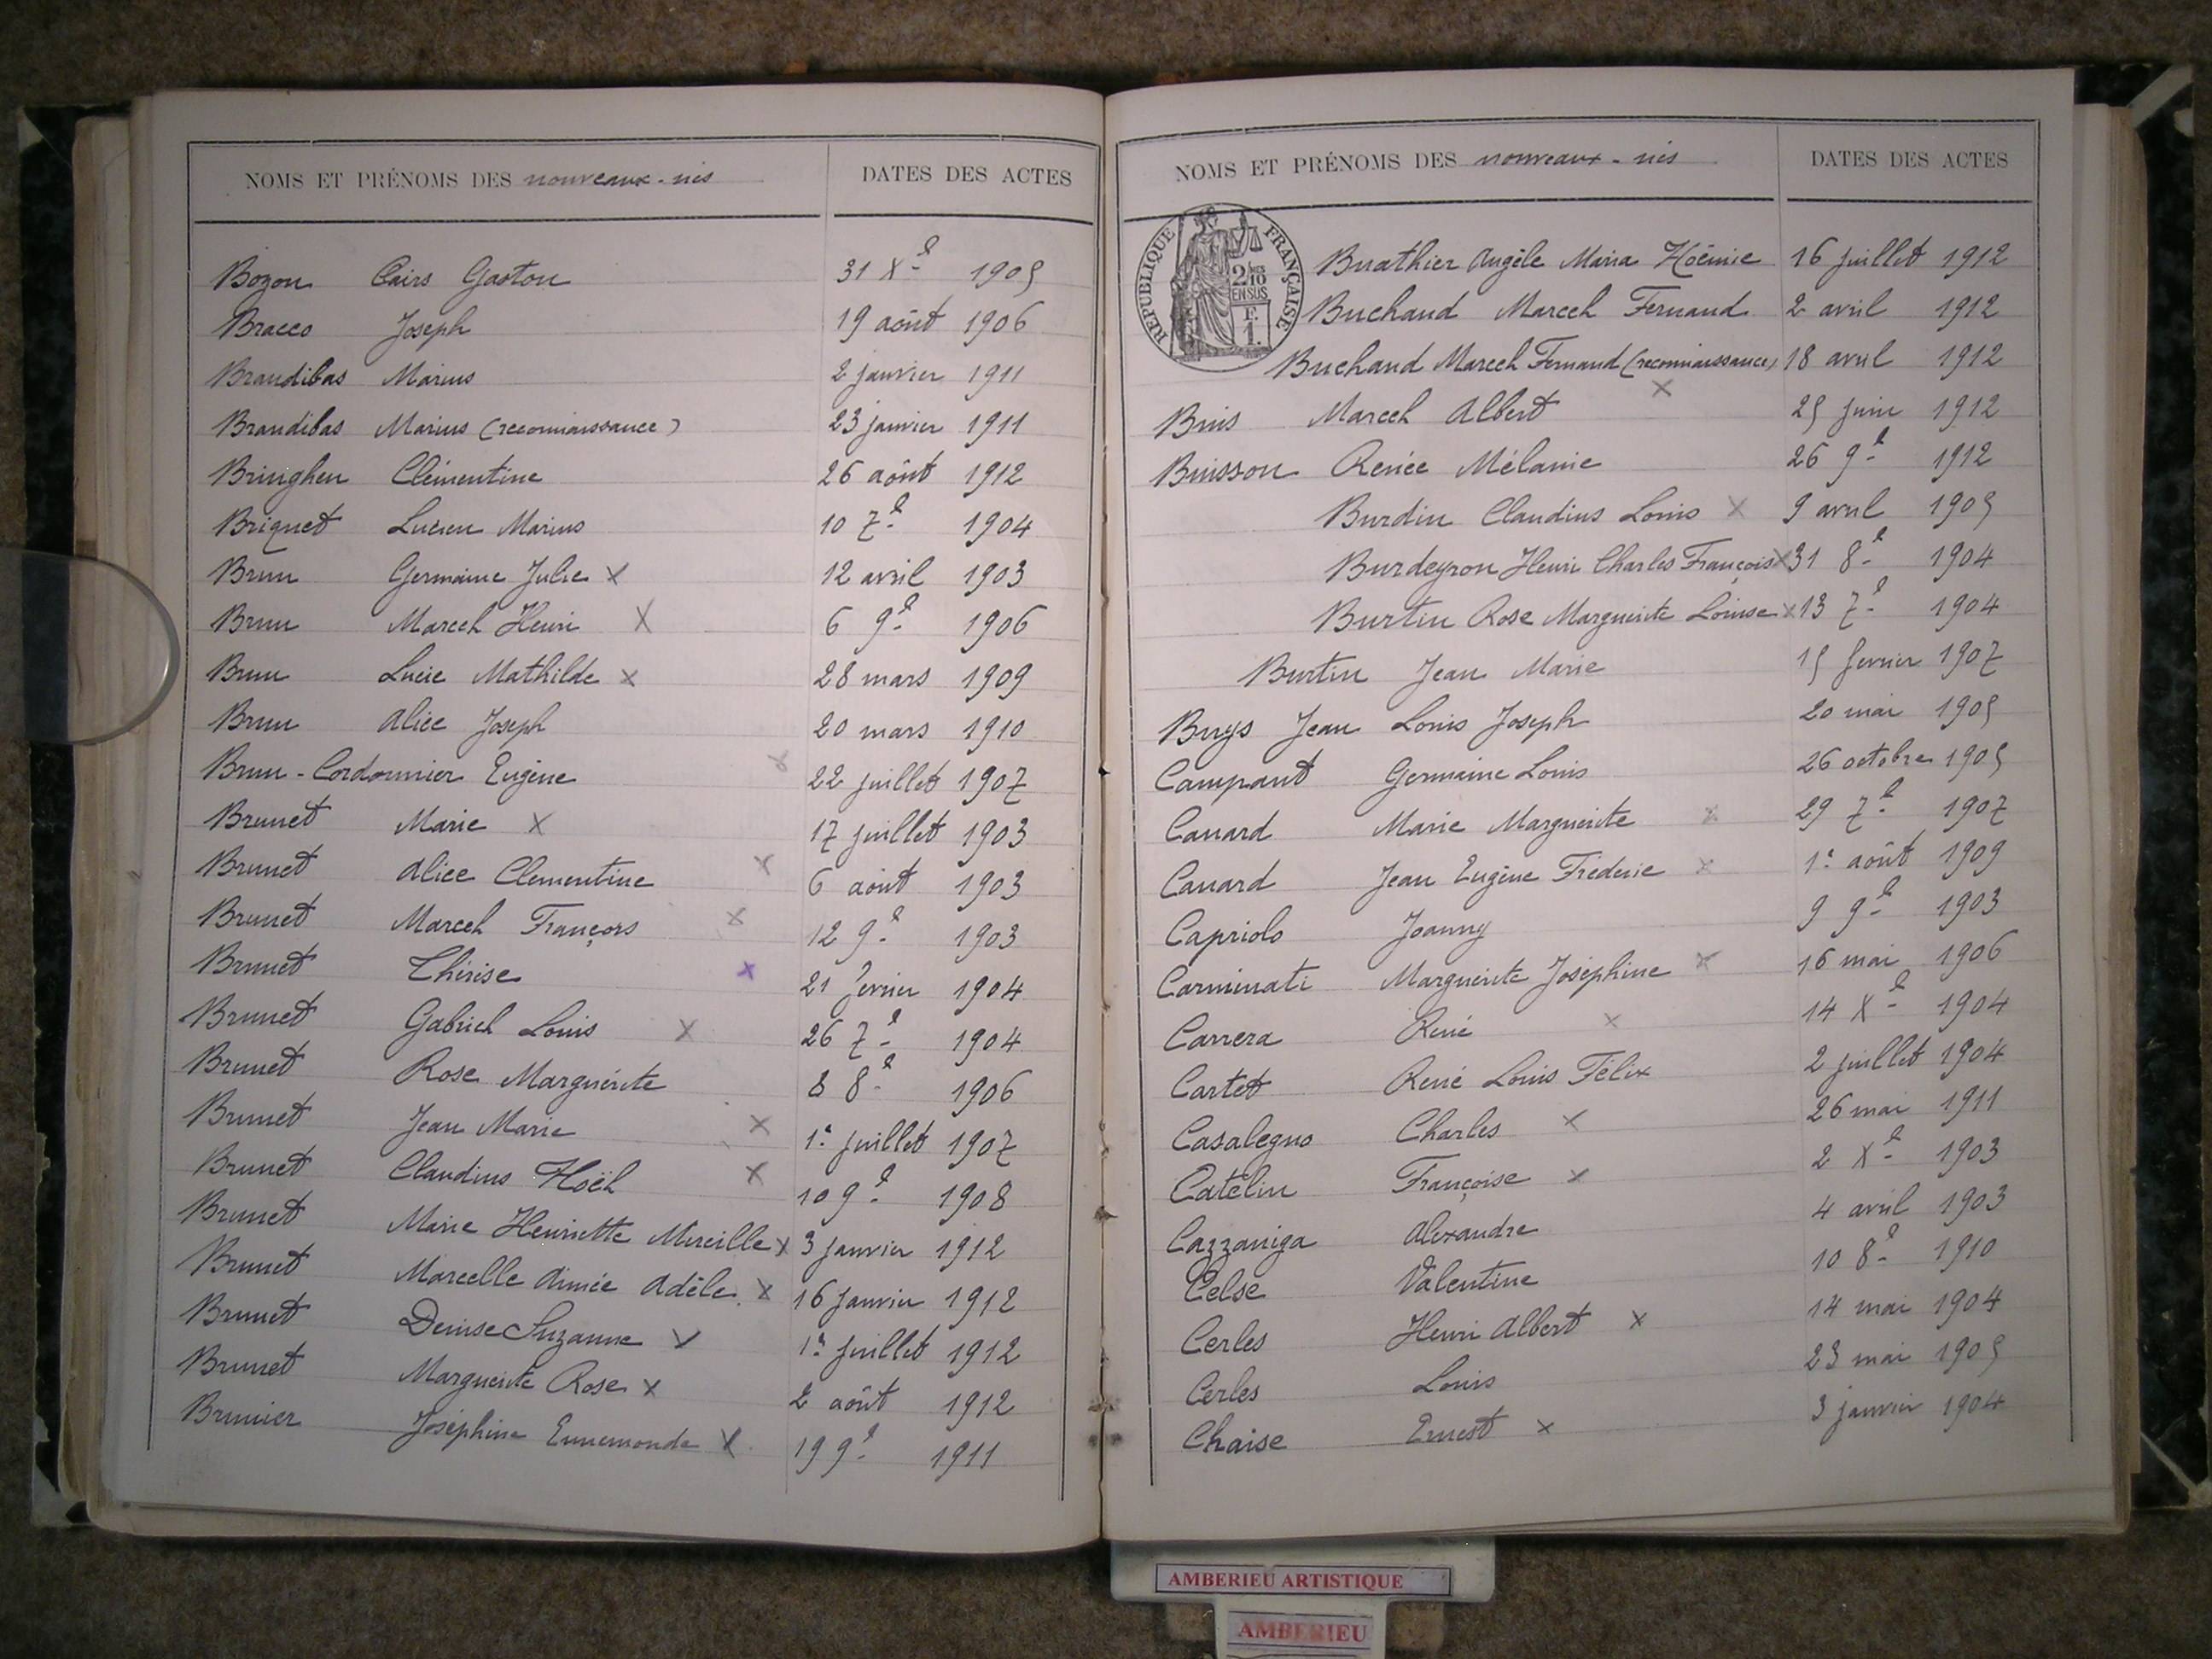 NOMS ET PRÉNOMS DES nouveaux-nés DATES DES ACTES
Bozon Cairs Gaston 31 Xe 1905
Bracco Joseph 19 août 1906
Brandibas Marius 2 janvier 1911
Brandibas Marius (reconnaissance) 23 janvier 1911
Bringhen Clémentine 26 août 1912
Briquet Lucien Marius 10 7e 1904
Brun Germaine Julie X 12 avril 1903
Brun Marcel Henri X 6 9e 1906
Brun Lucie Mathilde X 28 mars 1909
Brun Alice Joseph 20 mars 1910
Brun-Cordonnier Eugène X 22 juillet 1907
Brunet Marie X 17 juillet 1903
Brunet Alice Clementine X 6 août 1903
Brunet Marcel François X 12 9e 1903
Brunet Thérèse X 21 fevrier 1904
Brunet Gabriel Louis X 26 7e 1904
Brunet Rose Marguérite 8 8e 1906
Brunet Jean Marie X 1er juillet 1907
Brunet Claudius Noël X 10 9e 1908
Brunet Marie Henriette Mireille X 3 janvier 1912
Brunet Marcelle Aimée Adèle X 16 janvier 1912
Brunet Denise Suzanne X 1er juillet 1912
Brunet Marguerite Rose X 2 août 1912
Brunier Joséphine Ennemonde X 19 9e 1911
NOMS ET PRÉNOMS DES nouveaux-nés DATES DES ACTES
RÉPUBLIQUE FRANÇAISE
2/10 EN SUS
F. 1.
Buathier Angèle Maria Noémie 16 juillet 1912
Buchaud Marcel Fernand 2 avril 1912
Buchaud Marcel Fernand (reconnaissance) 18 avril 1912
Buis Marcel Albert X 25 juin 1912
Buisson Renée Mélanie 26 9e 1912
Burdin Claudius Louis X 9 avril 1905
Burdeyron Henri Charles François X 31 8e 1904
Burtin Rose Marguerite Louise X 13 7e 1904
Burtin Jean Marie 15 fevrier 1907
Buys Jean Louis Joseph 20 mai 1905
Campant Germaine Louis 26 octobre 1905
Canard Marie Marguerite X 29 7e 1907
Canard Jean Eugène Fréderic X 1er août 1909
Capriolo Joanny 9 9e 1903
Carminati Marguerite Joséphine X 16 mai 1906
Carrera René X 14 Xe 1904
Cartet René Louis Félix 2 juillet 1904
Casalegno Charles X 26 mai 1911
Catelin Françoise X 2 Xe 1903
Cazzaniga Alexandre 4 avril 1903
Celse Valentine 10 8e 1910
Cerles Henri Albert X 14 mai 1904
Cerles Louis 23 mai 1905
Chaise Ernest X 3 janvier 1904
AMBERIEU ARTISTIQUE
AMBERIEU